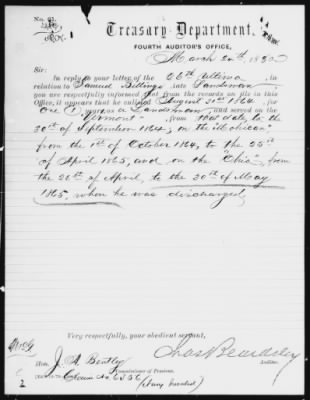 Treasury Department,
FOURTH AUDITOR'S OFFICE,
March 24th, 1880
Sir:
In reply to your letter of the 26th Ultimo, in
relation to Samuel Billings late Landsman
you are respectfully informed that from the records on file in this
Office, it appears he enlisted August 31st 1864 for
One (1) year as a Landsman, and served on the
"Vermont" from that date, to the
30th of September 1864; on the "Mohican"
from the 1st of October 1864, to the 25th
of April 1865, and on the "Ohio", from
the 26th of April, to the 30th of May
1865, when he was discharged
Very respectfully, your obedient servant,
Chas Beardsley
Auditor.
Hon. J. A. Bentley
Commissioner of Pensions.
Claim No. 6356
(Navy Invalid)
2